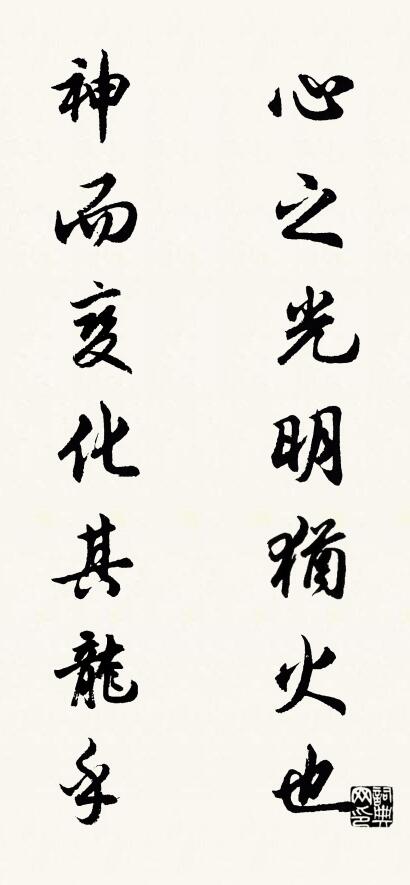 心之光明猶火也
神而变化其龍乎
詞典網印